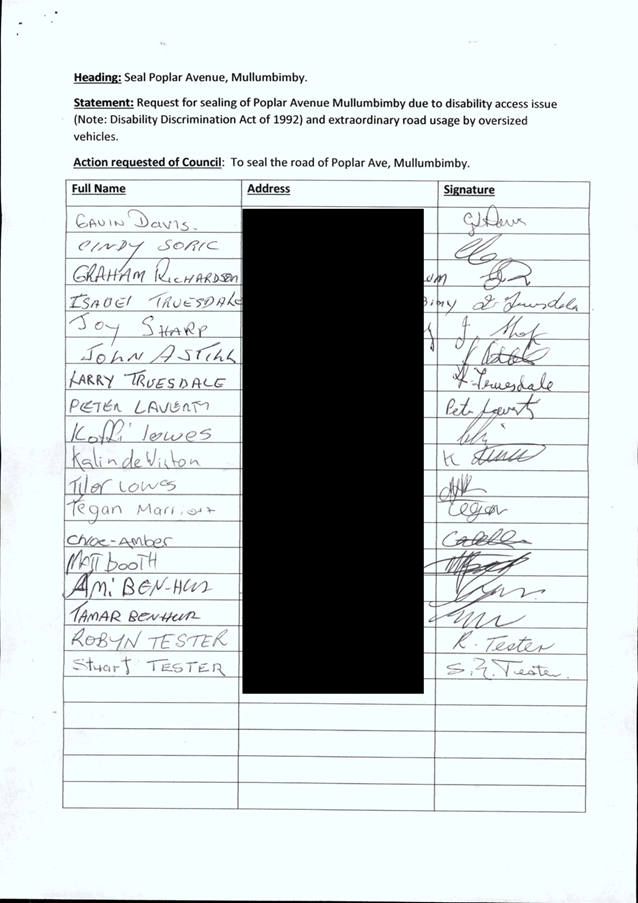 Heading: Seal Poplar Avenue, Mullumbimby.
Statement: Request for sealing of Poplar Avenue Mullumbimby due to disability access issue
(Note: Disability Discrimination Act of 1992) and extraordinary road usage by oversized
vehicles.
Action requested of Council: To seal the road of Poplar Ave, Mullumbimby.
Full Name Address Signature
GAVIN Davis.
CINDY SORIC
GRAHAM RICHARDSON
ISABEL TRUESDALE I. Truesdale
JOY SHARP J.
JOHN ASTILL
LARRY TRUESDALE L. Truesdale
PETER LAVERTY Peter Laverty
Koffi lowes
Kalinde K
Tylor LOWES
Tegan Marriott Tegan
Chloe-Amber
MATT booTH
AMI BEN-HUR
TAMAR BENHUR
ROBYN TESTER R. Tester
Stuart TESTER S. Tester.